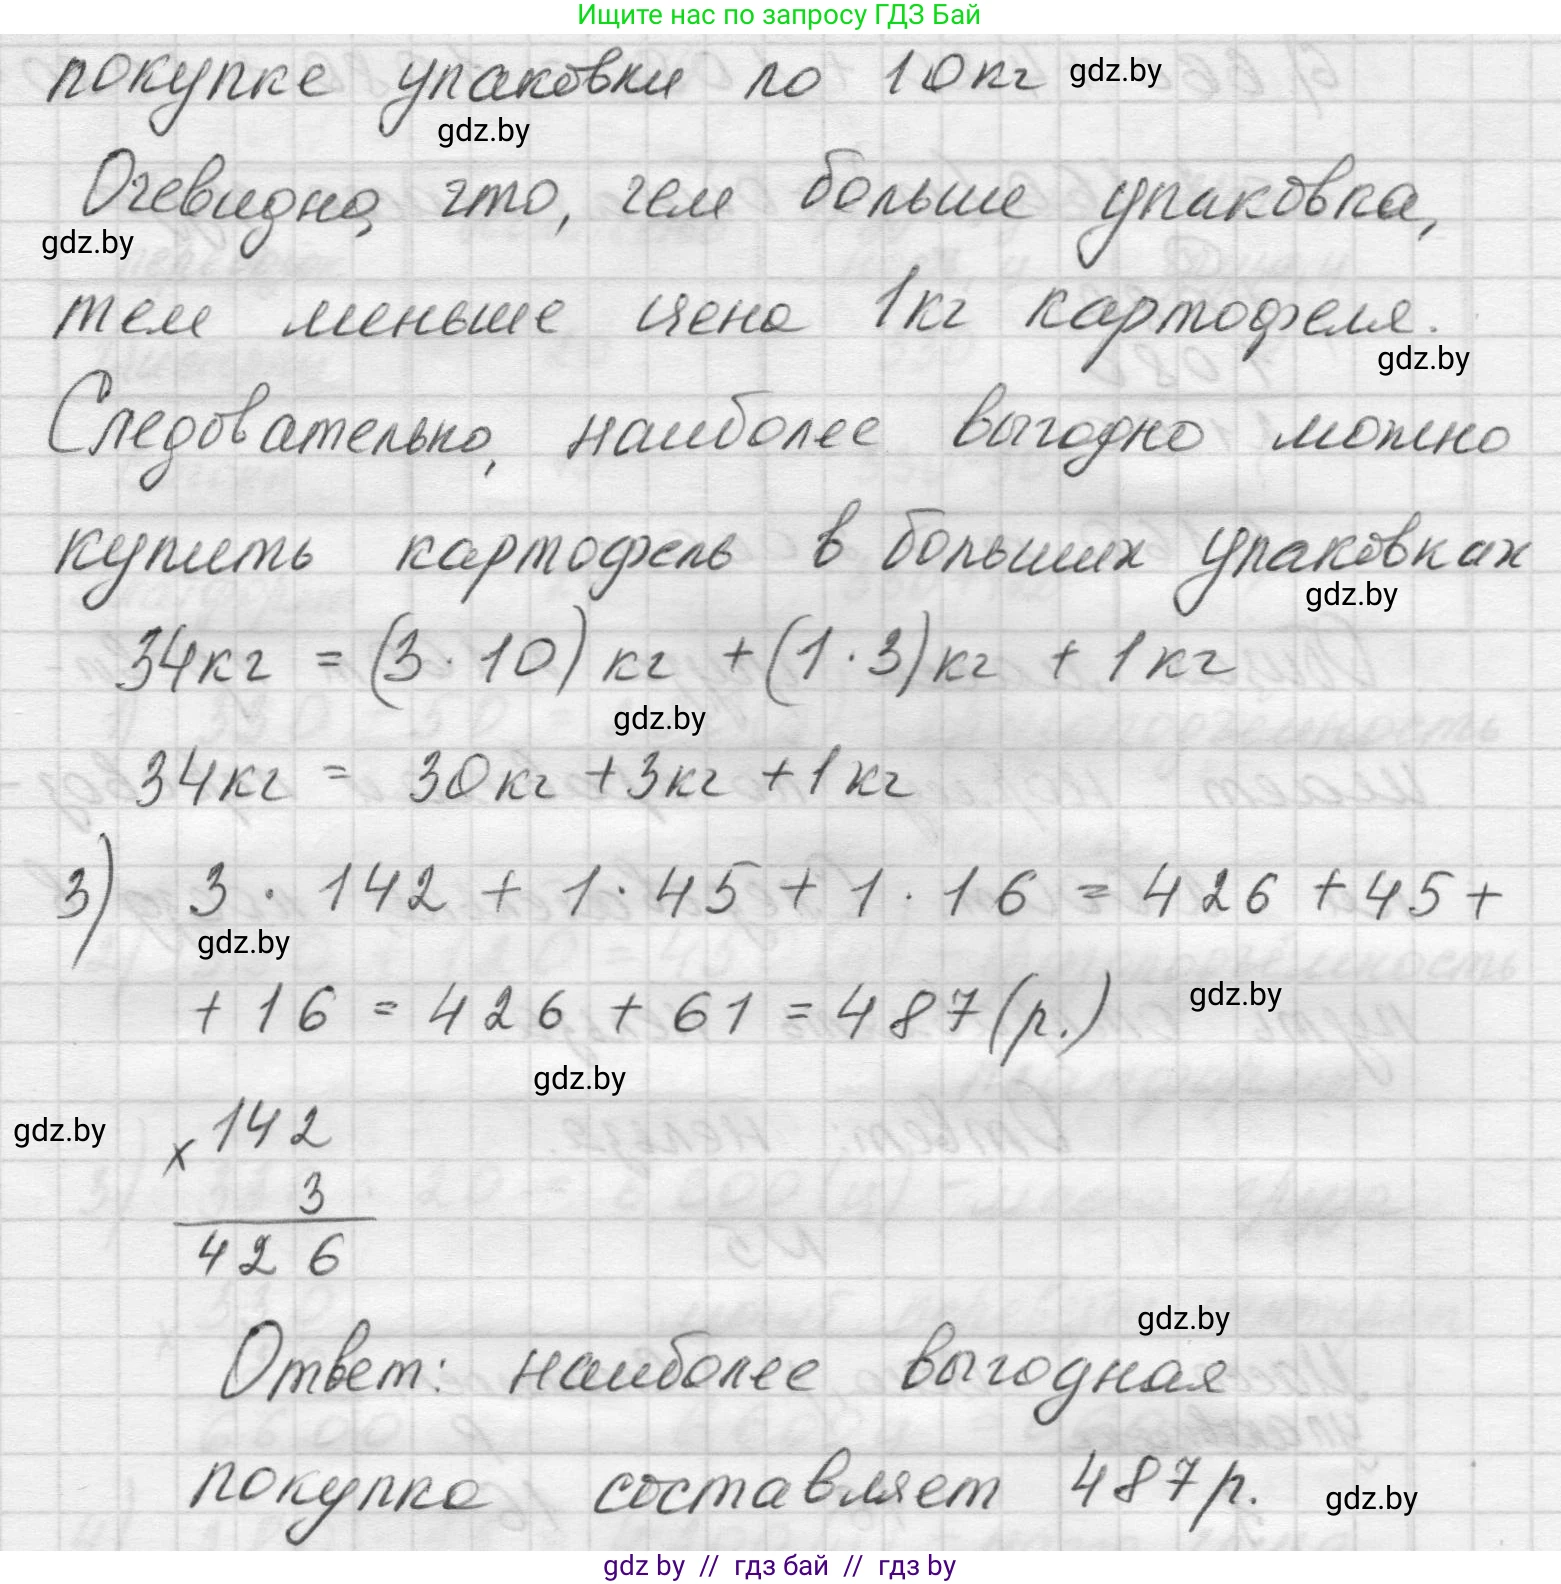 Ищите нас по запросу ГДЗ Бай
покупке упаковки по 10кг gdz.by
gdz.by
Очевидно, что, чем больше упаковка,
gdz.by
тем меньше цена 1кг картофеля.
gdz.by
Следовательно, наиболее выгодно можно
купить картофель в больших упаковках
gdz.by
34кг = (3 · 10) кг + (1 · 3) кг + 1кг
gdz.by
34кг = 30кг + 3кг + 1кг
3) 3 · 142 + 1 · 45 + 1 · 16 = 426 + 45 +
gdz.by
+ 16 = 426 + 61 = 487 (р.) gdz.by
gdz.by
gdz.by × 142
3
426
gdz.by
Ответ: наиболее выгодная
покупка составляет 487р. gdz.by
gdz by // гдз бай // гдз by